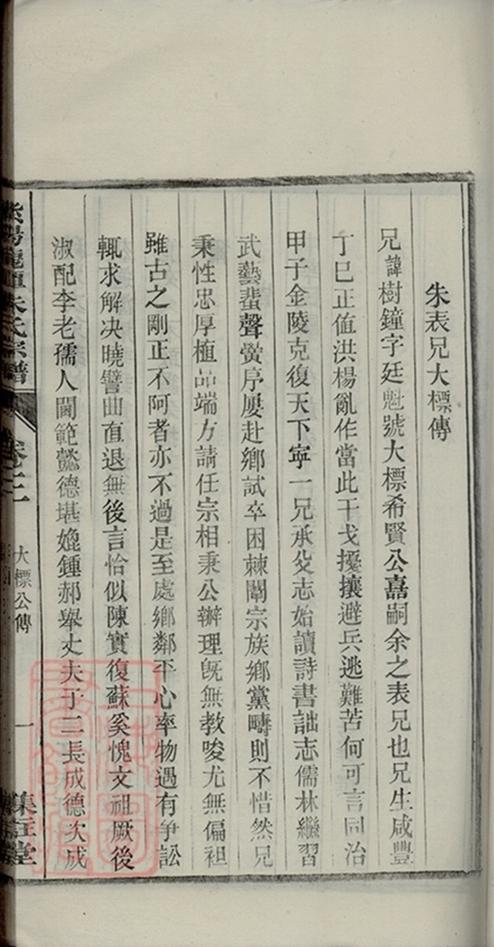 朱表兄大標傳
兄諱樹鐘字廷魁號大標希賢公嘉嗣余之表兄也兄生咸豐
丁巳正值洪楊亂作當此干戈擾攘避兵逃難苦何可言同治
甲子金陵克復天下寧一兄承父志始讀詩書詘志儒林繼習
武藝蜚聲黌序屢赴鄉試卒困棘闈宗族鄉黨疇則不惜然兄
秉性忠厚植品端方請任宗相秉公辦理旣無教唆尤無偏袒
雖古之剛正不阿者亦不過是至處鄉鄰平心率物遇有爭訟
輒求解决曉譬曲直退無後言恰似陳寔復蘇奚愧文祖厥後
淑配李老孺人閫範懿德堪媲鍾郝舉丈夫子二長成德次成
紫陽龍 朱氏宗譜
卷十二
大標公傳
一
集註堂